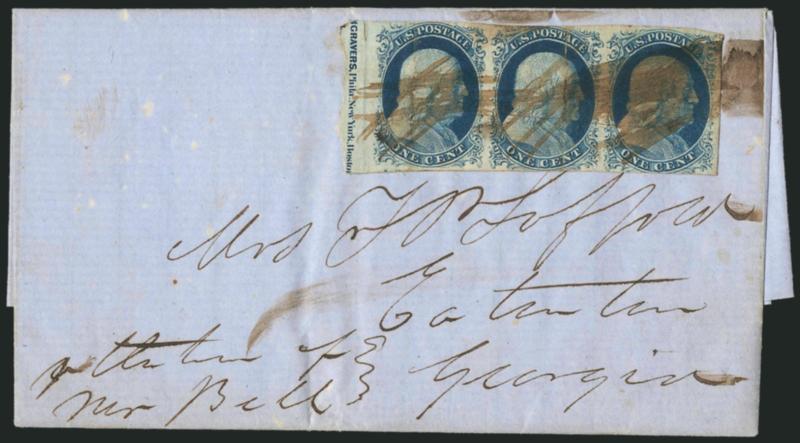 GRAVERS, Phila. New York, Boston
U.S. POSTAGE U.S. POSTAGE U.S. POSTAGE
ONE CENT ONE CENT ONE CENT
Mrs
Eatonton
Georgia
of
Mr Bell